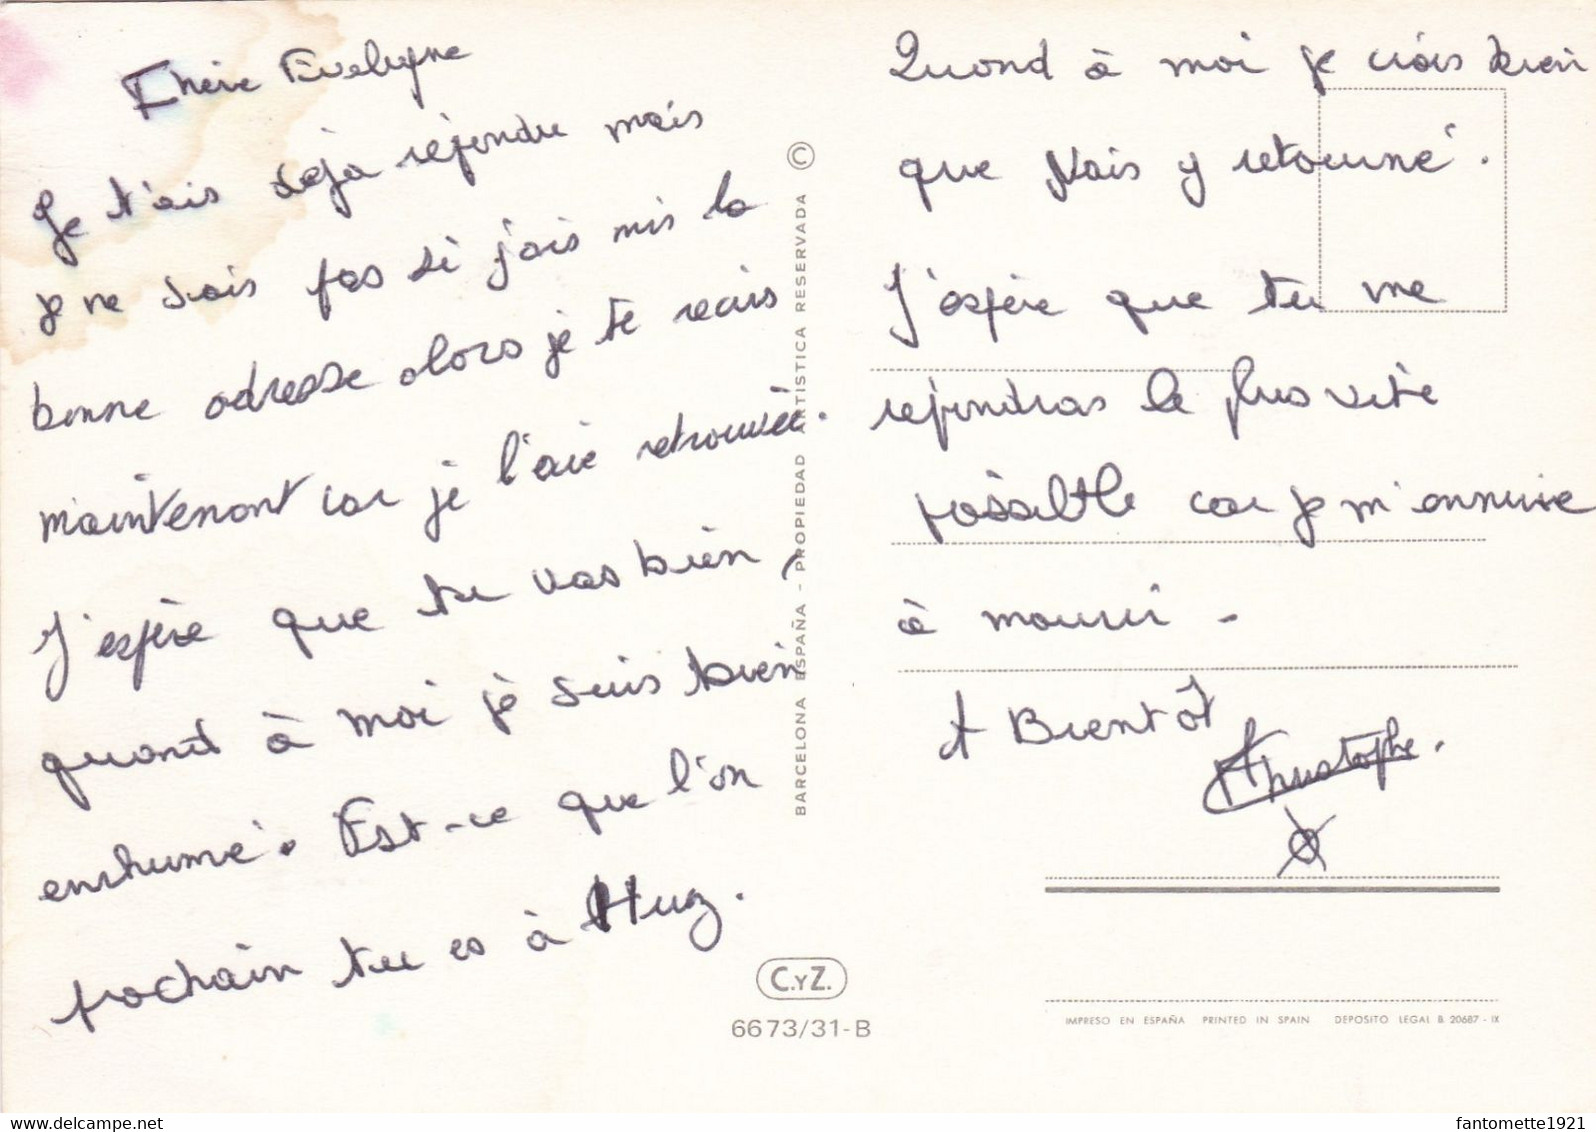 Chère Evelyne
Je t'ais déja répondu mais
je ne sais pas si j'ais mis la
bonne adresse alors je te recris
maintenant car je l'aie retrouvée.
J'espère que tu vas bien,
quand à moi je suis bien
enrhumé. Est-ce que l'on
prochain tu es à Huz.
Quand à moi je crois bien
que j'vais y retourné.
J'espère que tu me
répondras le plus vite
possible car je m'ennuie
à mourir.
A Bientôt
Christophe.
BARCELONA ESPAÑA - PROPIEDAD ARTISTICA RESERVADA ©
C.YZ.
6673/31-B
IMPRESO EN ESPAÑA PRINTED IN SPAIN DEPOSITO LEGAL B. 20687 - IX
www.delcampe.net
fantomette1921